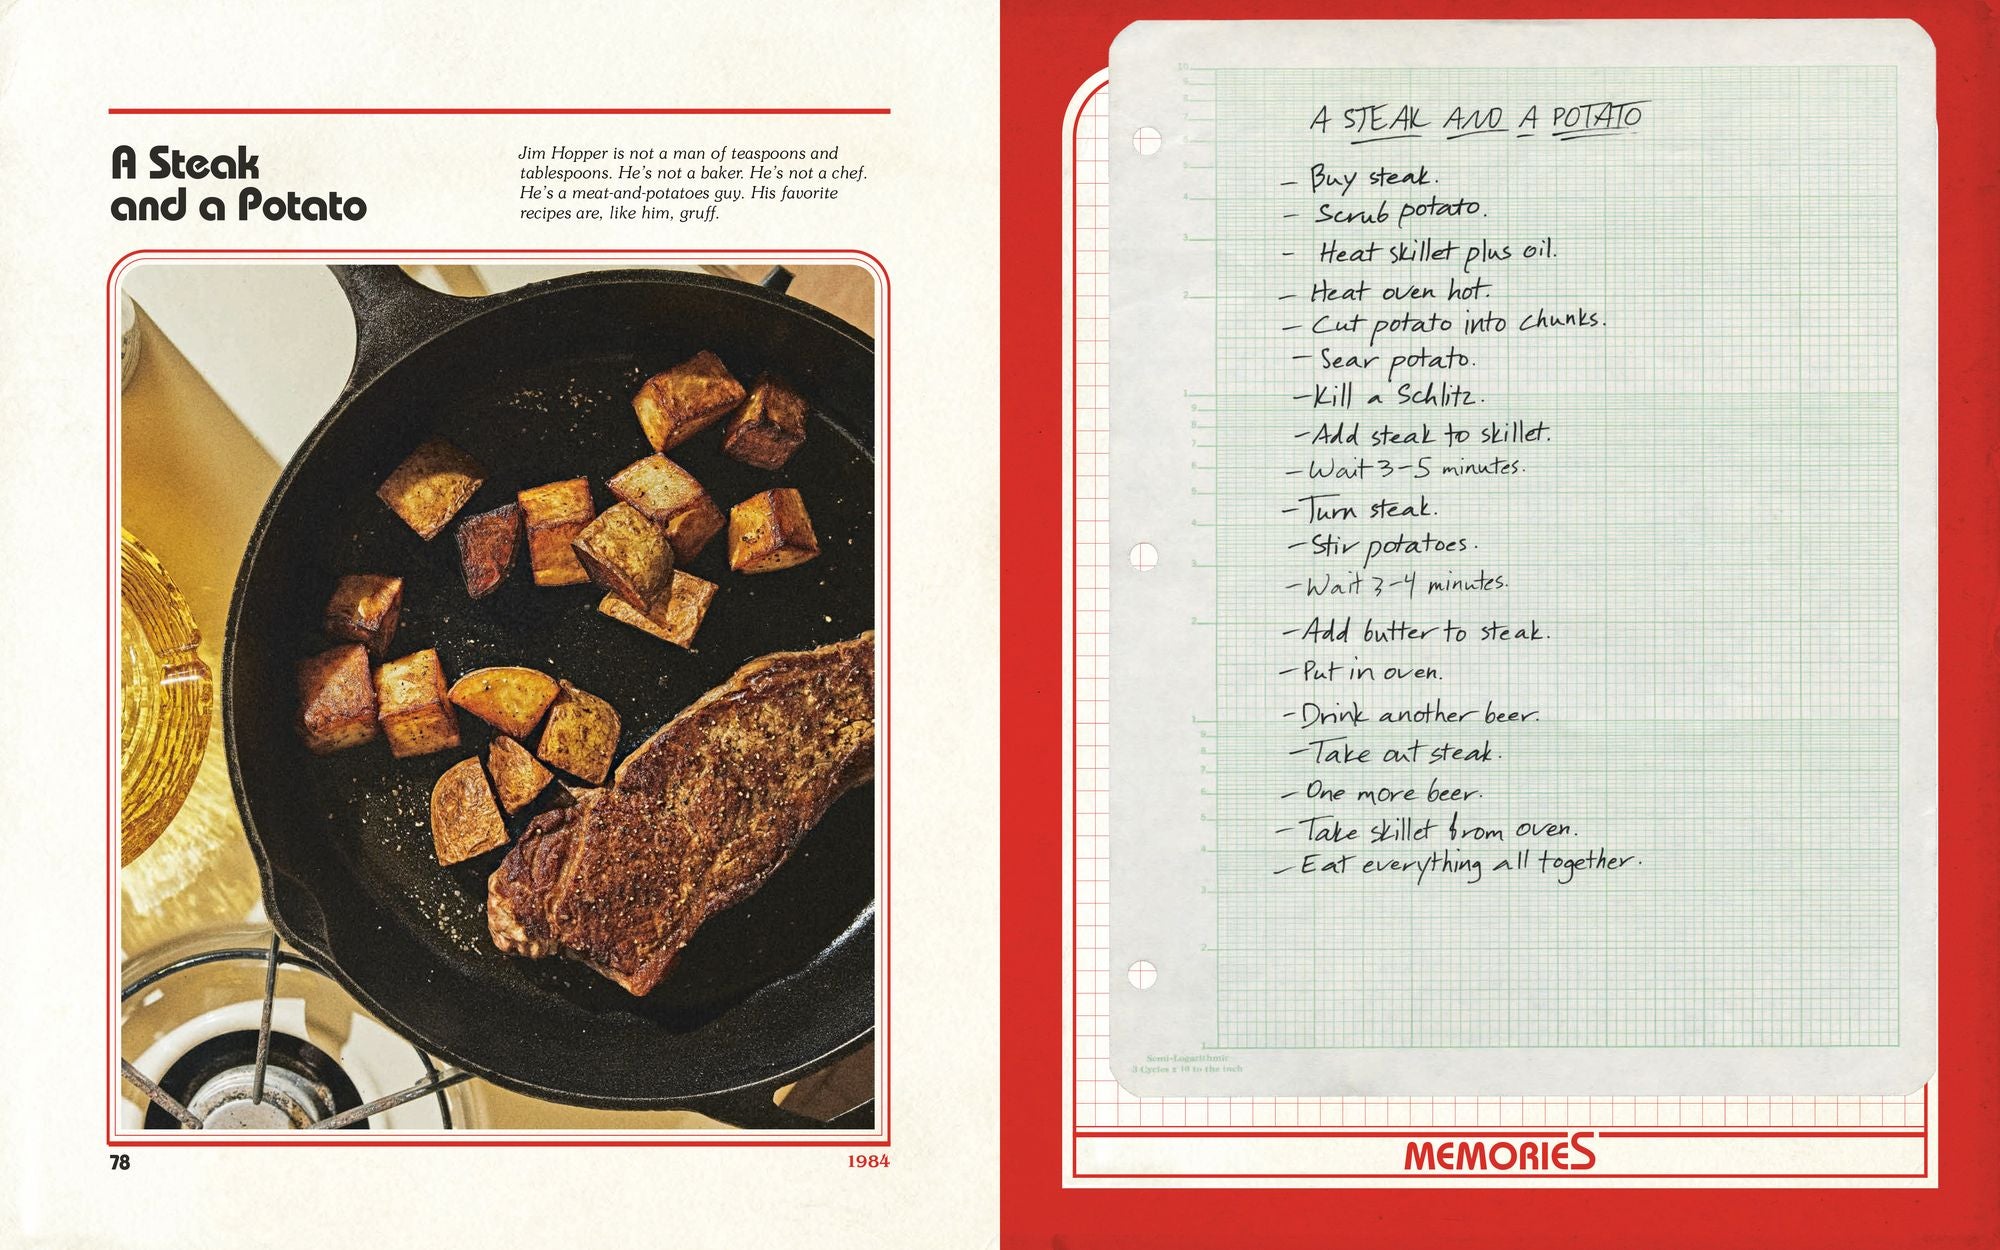 A Steak
and a Potato
Jim Hopper is not a man of teaspoons and
tablespoons. He's not a baker. He's not a chef.
He's a meat-and-potatoes guy. His favorite
recipes are, like him, gruff.
78
1984
A STEAK AND A POTATO
– Buy steak.
– Scrub potato.
– Heat skillet plus oil.
– Heat oven hot.
– Cut potato into chunks.
– Sear potato.
– Kill a Schlitz.
– Add steak to skillet.
– Wait 3–5 minutes.
– Turn steak.
– Stir potatoes.
– Wait 3–4 minutes.
– Add butter to steak.
– Put in oven.
– Drink another beer.
– Take out steak.
– One more beer.
– Take skillet from oven.
– Eat everything all together.
Semi-Logarithmic
3 Cycles x 10 to the inch
MEMORIES